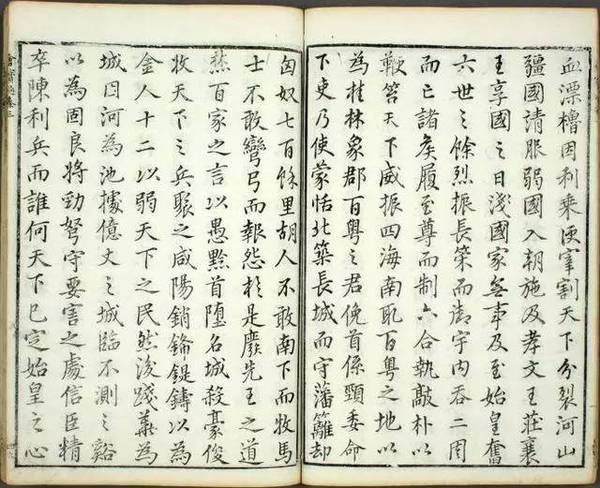 血漂櫓因利乗便宰割天下分裂河山
彊國請服弱國入朝施及孝文王莊襄
王享國之日淺國家無事及至始皇奮
六世之餘烈振長策而御宇内吞二周
而亡諸侯履至尊而制六合執敲朴以
鞭笞天下威振四海南取百粤之地以
為桂林象郡百粤之君俛首係頸委命
下吏乃使蒙恬北築長城而守藩籬却
匈奴七百餘里胡人不敢南下而牧馬
士不敢彎弓而報怨於是廢先王之道
焚百家之言以愚黔首墮名城殺豪俊
收天下之兵聚之咸陽銷鋒鍉鑄以為
金人十二以弱天下之民然後踐華為
城因河為池據億丈之城臨不測之谿
以為固良將勁弩守要害之處信臣精
卒陳利兵而誰何天下已定始皇之心